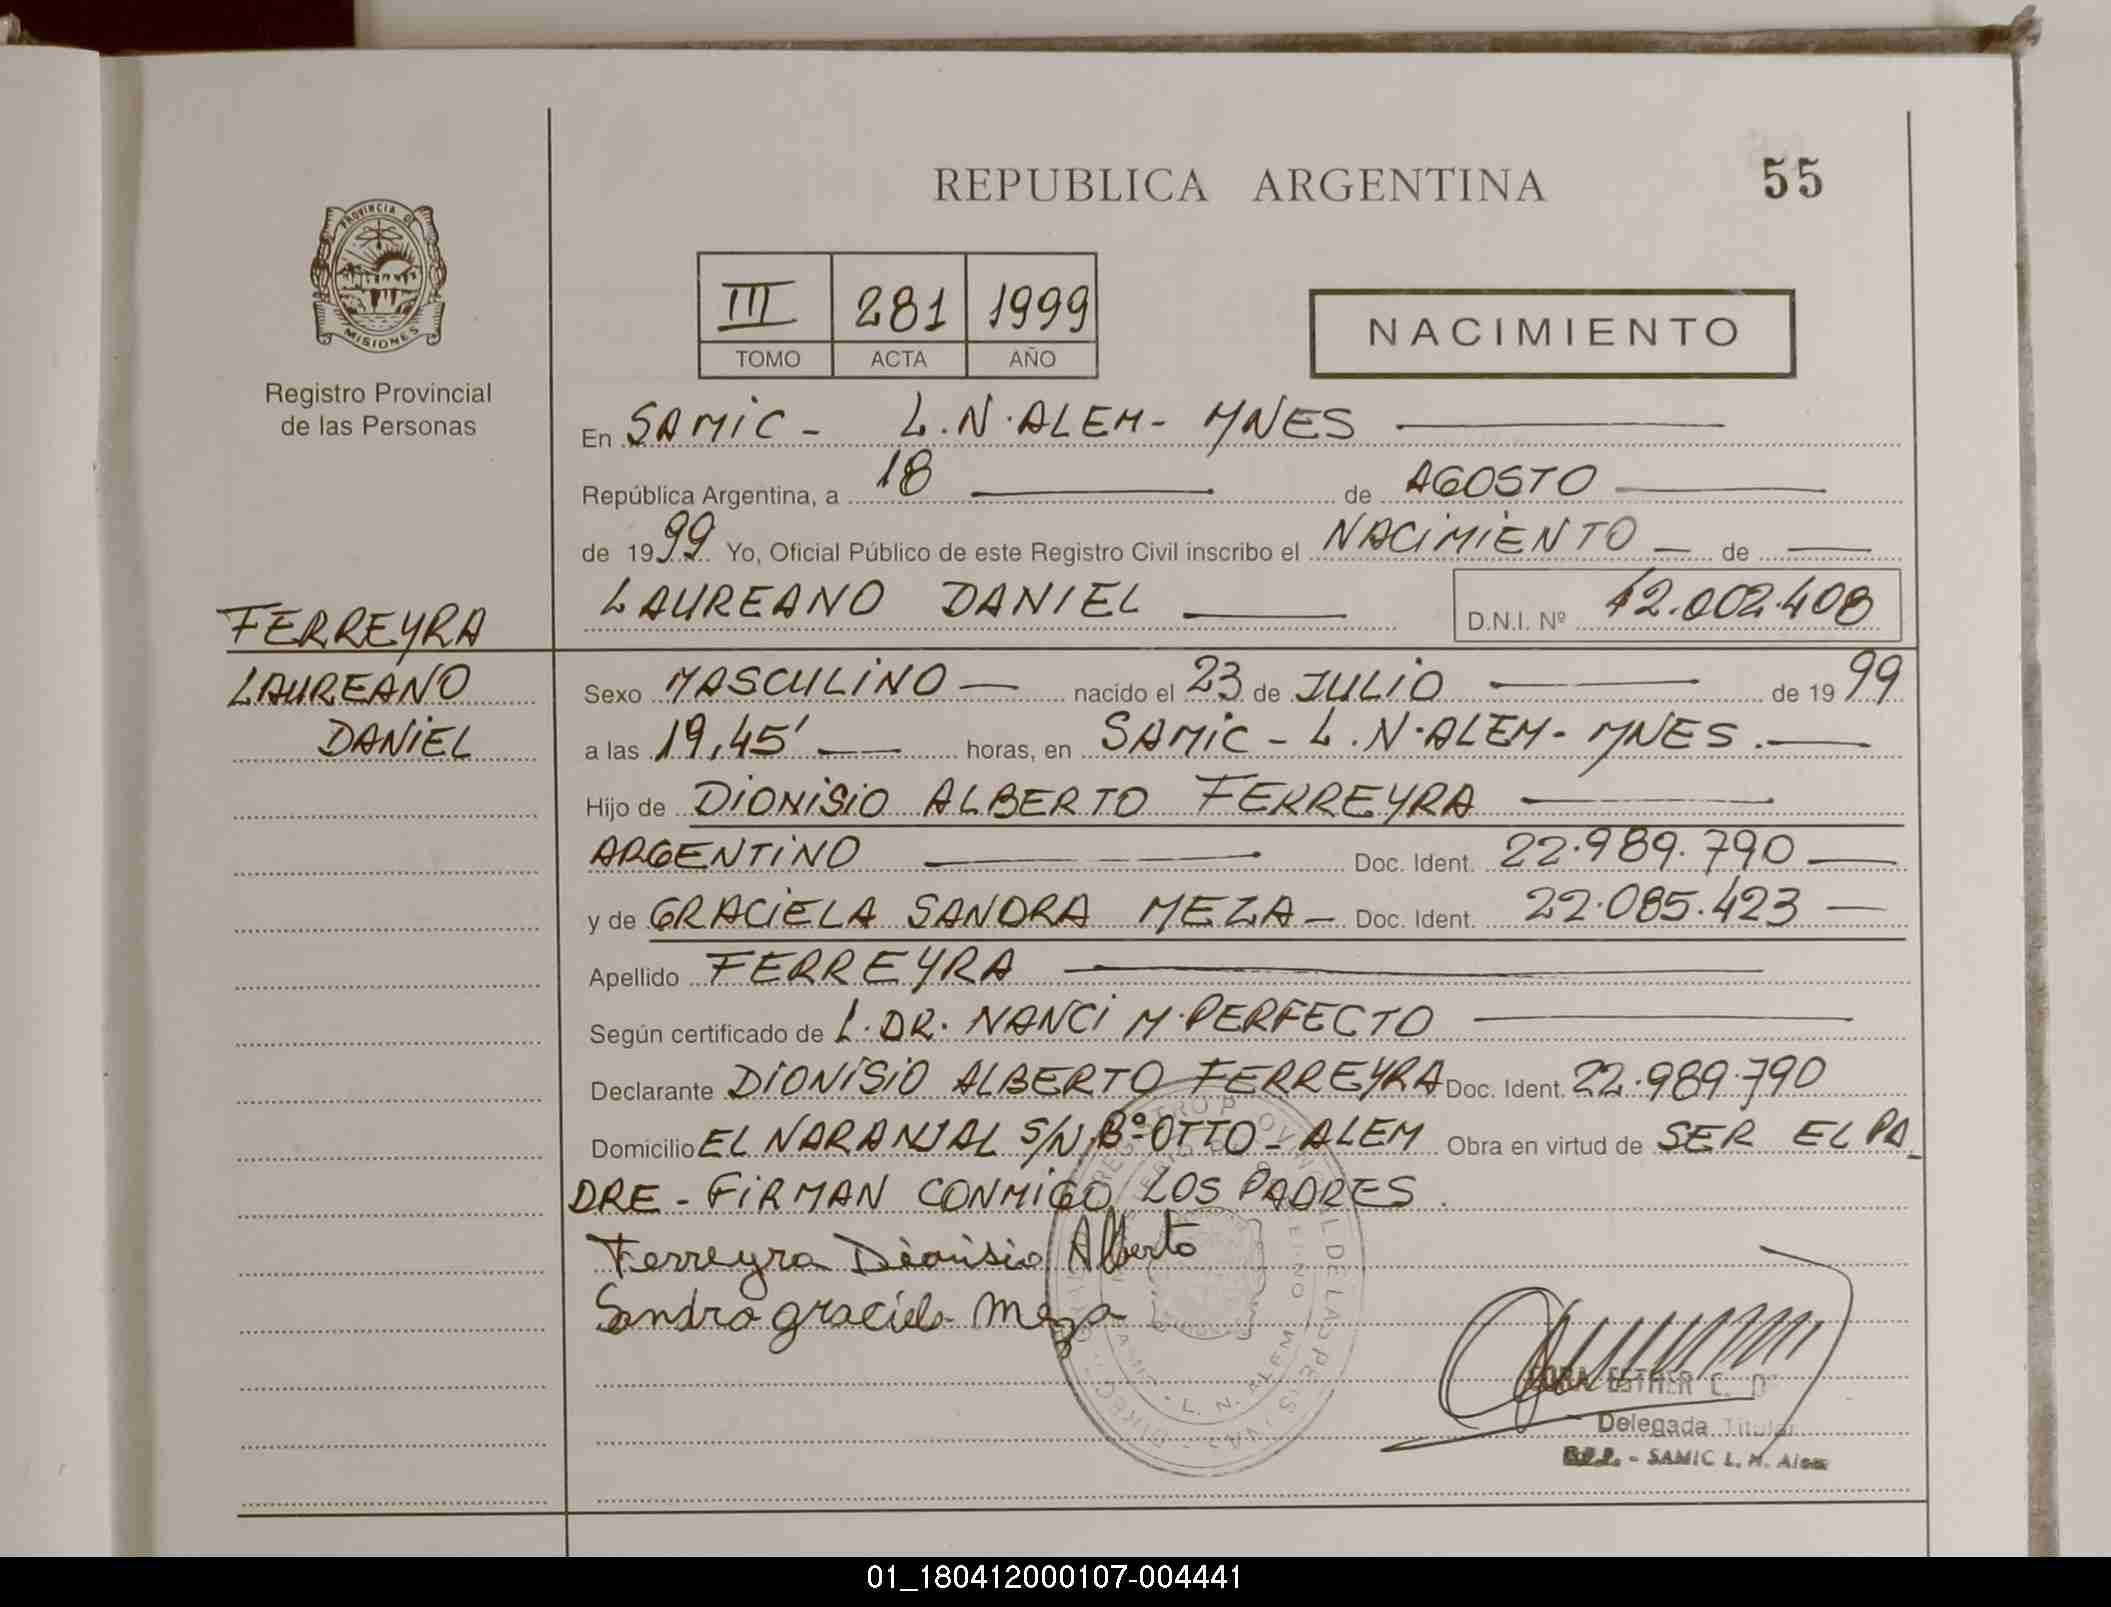 REPUBLICA ARGENTINA
55
PROVINCIA D
MISIONES
Registro Provincial
de las Personas
III 281 1999
TOMO ACTA AÑO
NACIMIENTO
En SAMIC - L.N. ALEM - MNES
República Argentina, a 18 de AGOSTO
de 1999 Yo, Oficial Público de este Registro Civil inscribo el NACIMIENTO de
LAUREANO DANIEL D.N.I. Nº 42.002.408
FERREYRA
LAUREANO
DANIEL
Sexo MASCULINO nacido el 23 de JULIO de 1999
a las 19,45' horas, en SAMIC - L.N. ALEM - MNES.
Hijo de DIONISIO ALBERTO FERREYRA
ARGENTINO Doc. Ident. 22.989.790
y de GRACIELA SANDRA MEZA - Doc. Ident. 22.085.423
Apellido FERREYRA
Según certificado de L. DR. NANCI M. PERFECTO
Declarante DIONISIO ALBERTO FERREYRA Doc. Ident. 22.989.790
Domicilio EL NARANJAL S/N Bº OTTO - ALEM Obra en virtud de SER EL PA_
DRE - FIRMAN CONMIGO LOS PADRES.
Ferreyra Dionisio Alberto
Sandra graciela Meza
ESTHER
Delegada Titular
- SAMIC L. N. Alem
L. N. ALEM
01_180412000107-004441